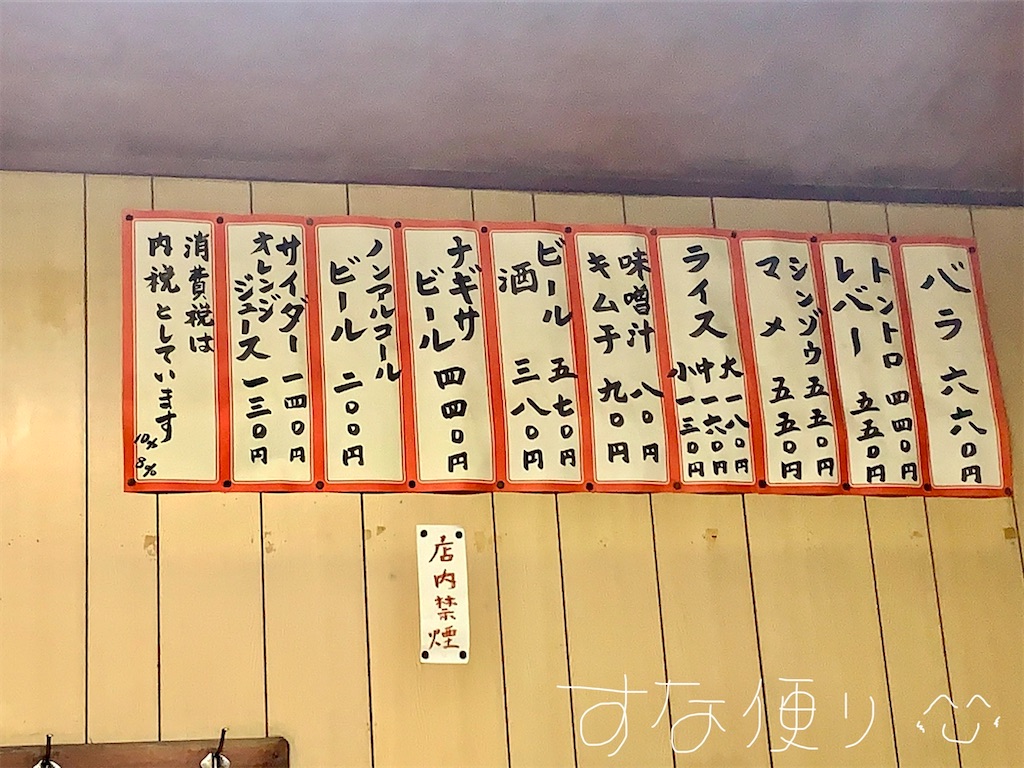 バラ 六六0円
トントロ 四四0円
レバー 五五0円
シンゾウ 五五0円
マメ 五五0円
ライス 大 一八0円
中 一六0円
小 一三0円
味噌汁 八0円
キムチ 九0円
ビール 五七0円
酒 三八0円
ナギサビール 四四0円
ノンアルコール
ビール 二00円
サイダー 一四0円
オレンジジュース 一三0円
消費税は
内税としています
10% 8%
店内禁煙
すな便り